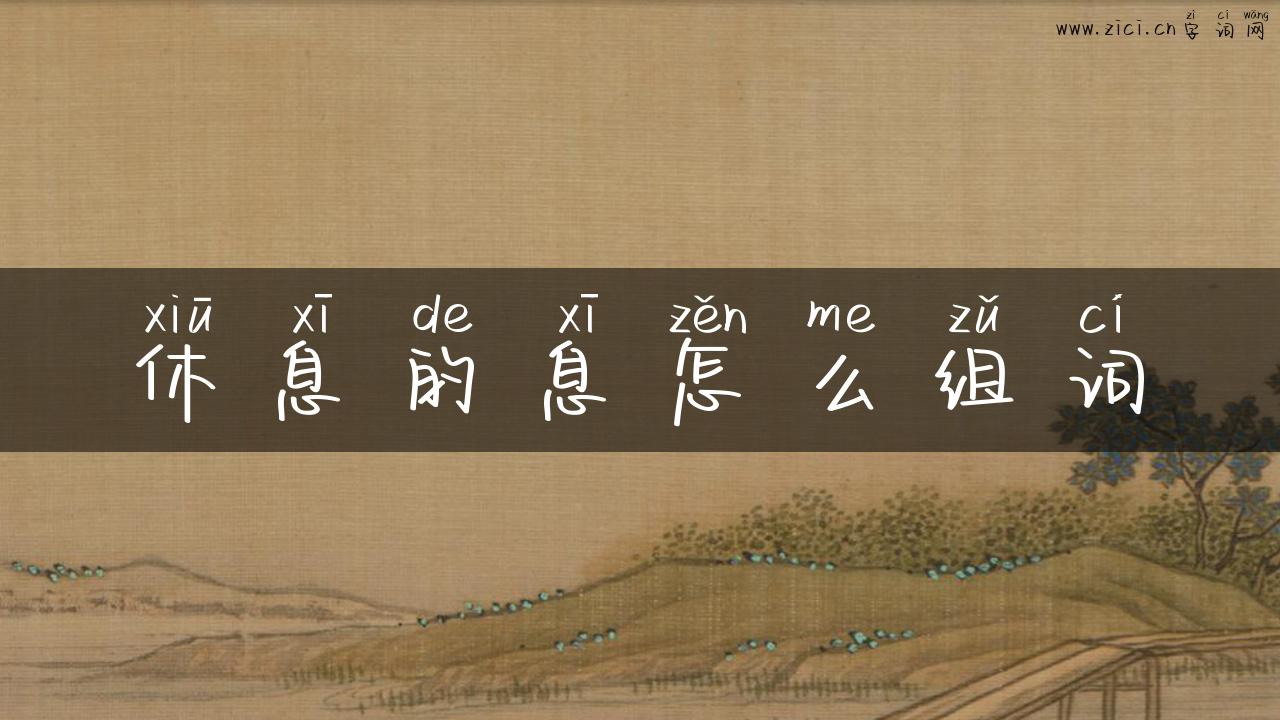 zì cí wǎng
www.zici.cn字词网
xiū xī de xī zěn me zǔ cí
休息的息怎么组词